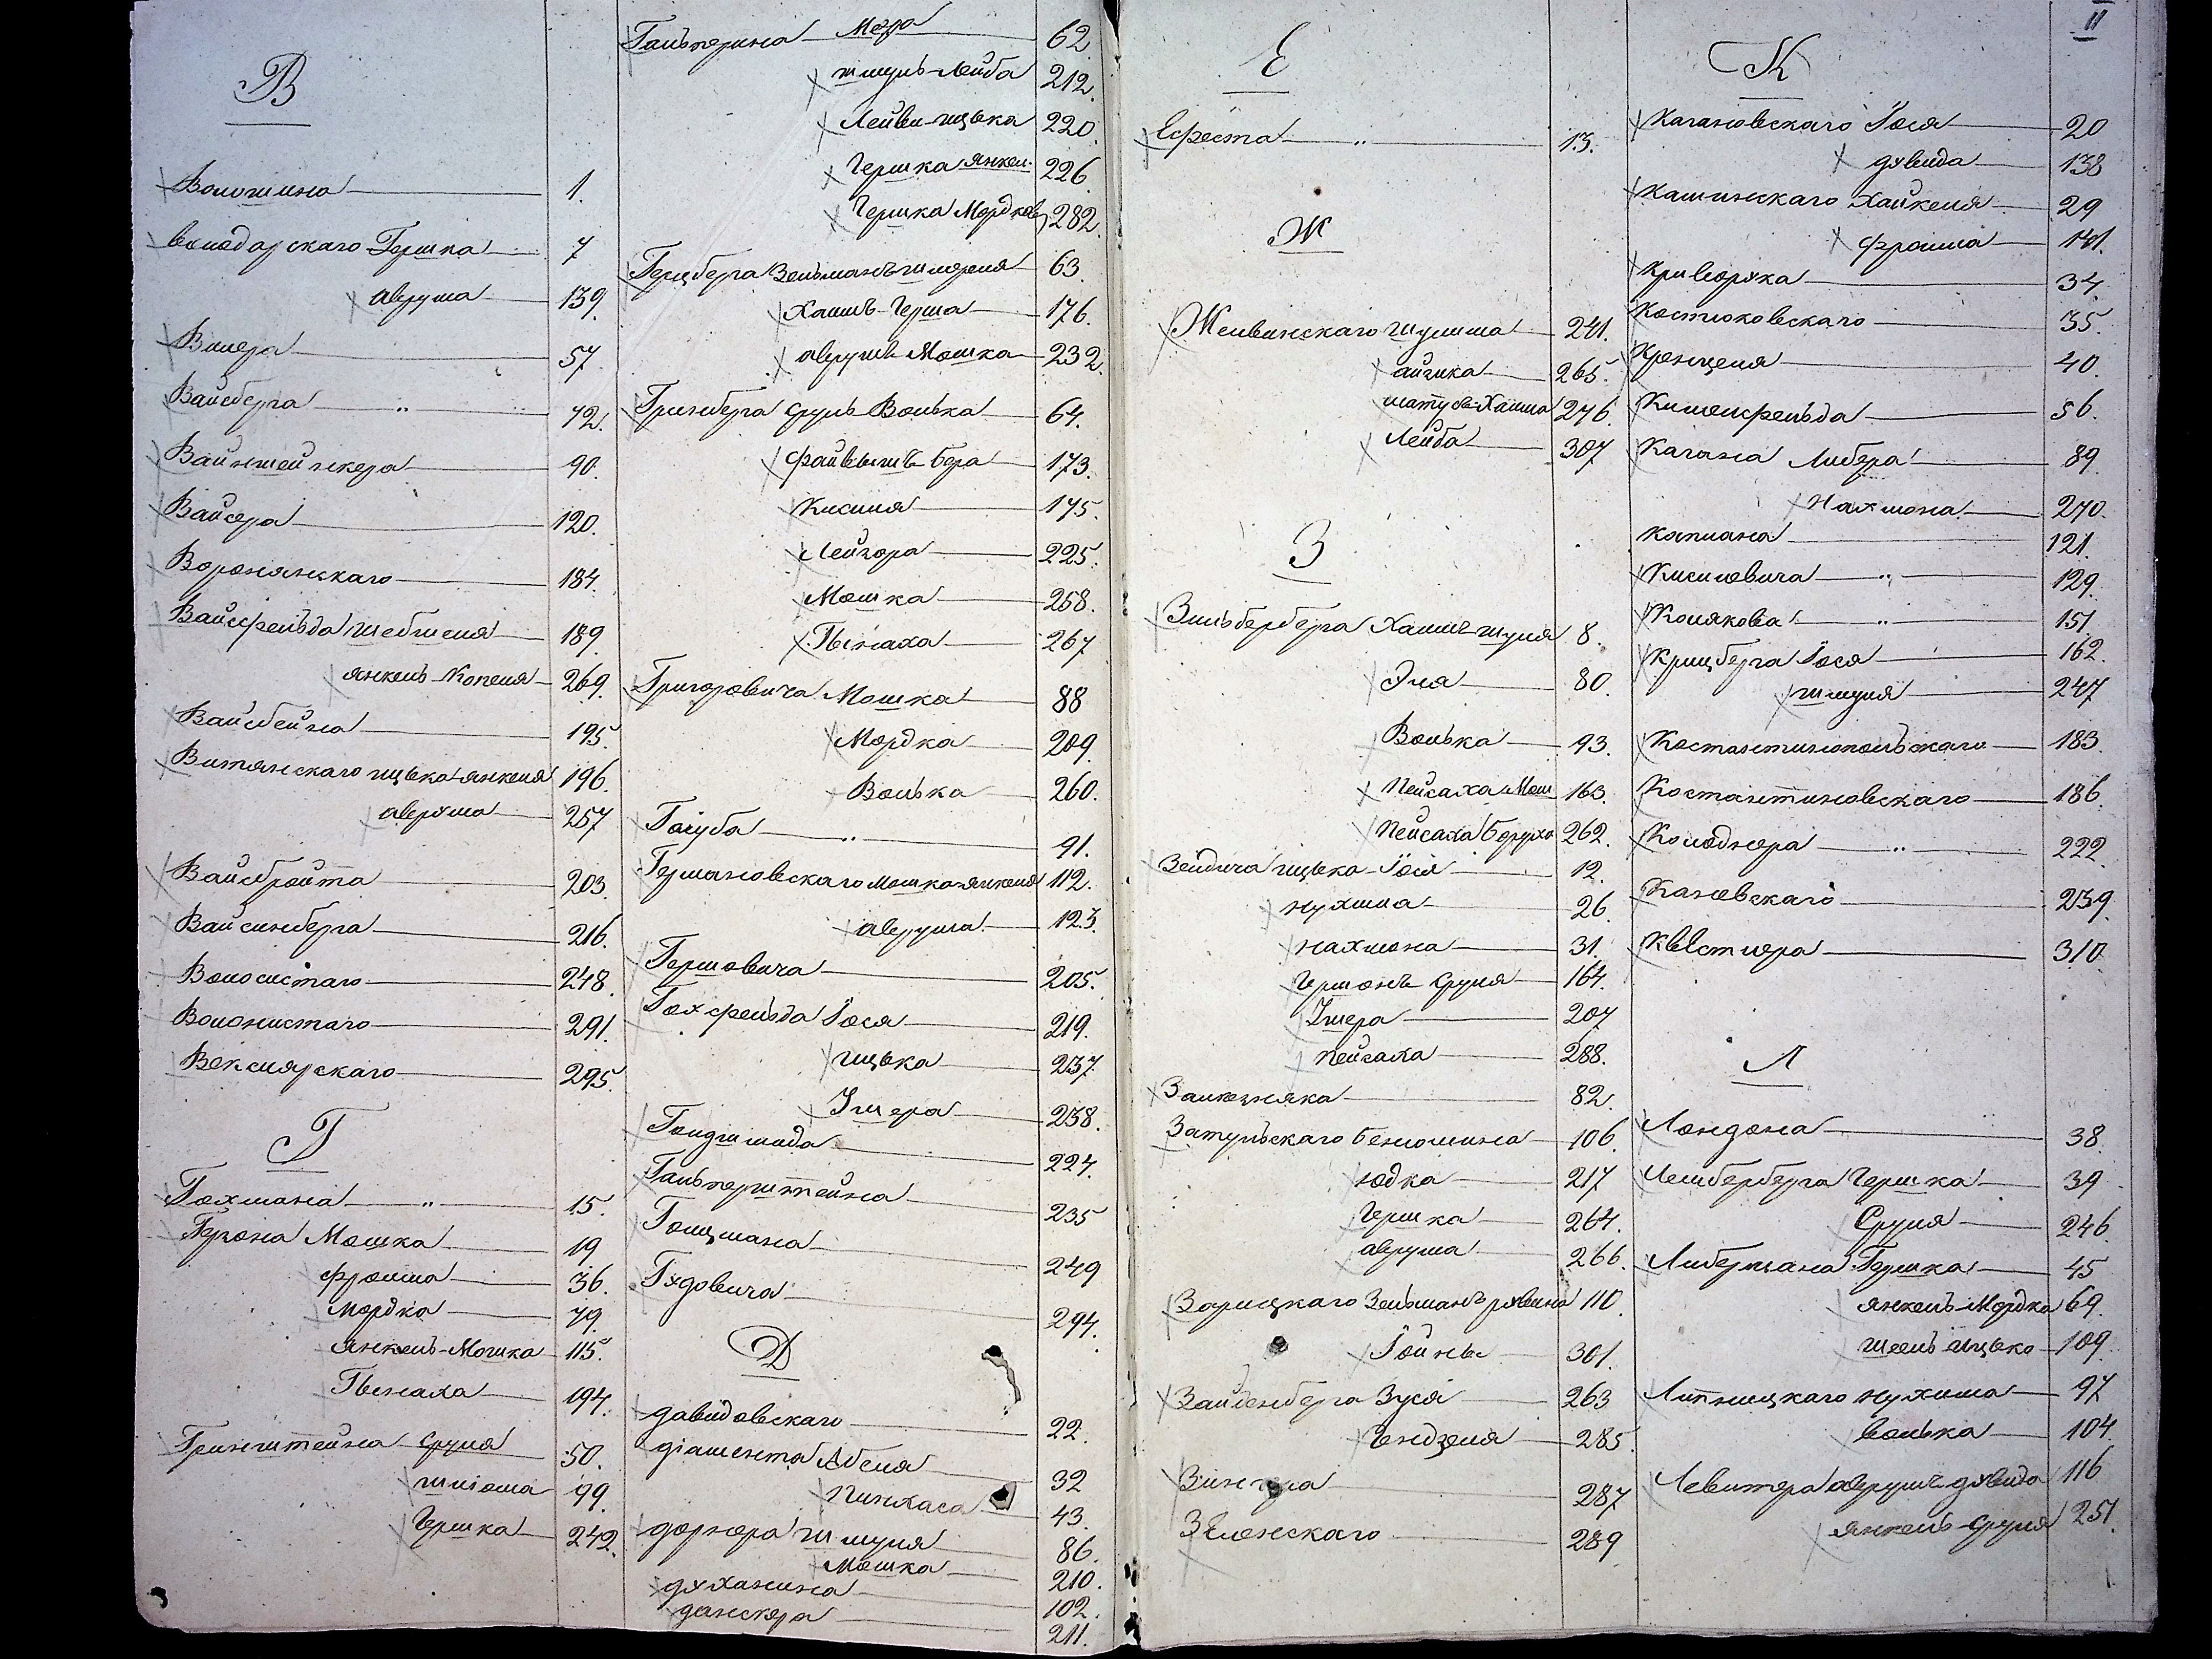 В
Волошина 1.
Володарскаго Гершка 7
Аврума 139.
Вилера 57
Вайсберга " 72.
Вайнштейнкера 90.
Вайсера 120.
Воронянскаго 184.
Вайсфельда Шебшеля 189.
Янкель-Копеля 269.
Вайсбейна 195.
Витянскаго Ицька-Янкеля 196.
Аврума 257
Вайсбройта 203
Вайсинберга 216.
Волосистаго 248.
Волонистаго 291.
Векслярскаго 295.
Г
Гохмана " 15.
Герзона Мошка 19
Фроима 36.
Мордка 79.
Янкель-Мошка 115.
Пинхаса 194.
Гринштейна Сруля 50.
Шлиома 99.
Гершка 242.
Гальперина Меера 62
Шмуль-Лейба 212.
Лейви-Ицька 220.
Гершка Янкел. 226.
Гершка Мордков. 282.
Герцберга Зельмань 63.
Хаимъ-Герша 176.
Аврумъ Мошка 232.
Гринберга Сруль Волька 64.
Файвышъ Бера 173.
Кисиля 175.
Лейзора 225.
Мошка 258.
Пинхаса 267
Григоровича Мошка 88
Мордка 209.
Волька 260.
Голуба " 91.
Германовскаго Мошка-Янкеля 112.
Аврума 123.
Гершовича 205.
Гохфельда Іося 219.
Ицька 237.
Умера 238.
Гольдшмида 224.
Гальперштейна 235
Голцмана 249
Гудовича 294.
Д
Давидовскаго 22.
Діамента Абеля 32
Пинхаса 43.
Дорнера Шмуля 86.
Мошка 210.
Духанина 102.
Данскера 211.
Е
Ефеста " 13.
Ж
Желвинскаго Шулима 241.
Айзика 265.
Матусь-Хаима 276.
Лейба 307
З
Зильберберга Хаимъ-Шуля 8.
Эля 80.
Волька 93.
Пейсаха Мош 163.
Пейсаха Боруха 262.
Зейдича Ицька-Іося 12.
Нухима 26.
Нахмона 31.
Гершонъ Сруля 164.
Умера 207
Пейсаха 288.
Залюзняка 82.
Затульскаго Беньомина 106.
Юдка 217
Гершка 264.
Аврума 266.
Зарицкаго Зельманъ рувина 110.
Іойны 301.
Зайденберга Зуся 263
Гендзеля 285.
Зингера 287
Зеленскаго 289
II
К
Кагановскаго Іося 20
Дувида 138
Кашинскаго Хайкеля 29
Фроима 141.
Криворука 34
Костюковскаго 35.
Кренцеля 40.
Кишенфельда 56.
Кагана Либера 89.
Нахмона 270.
Каплана 121.
Кисиловича " 129.
Колякова " 151.
Крицберга Іося 162.
Шмуля 247
Костантинопольскаго 183.
Костантиновскаго 186.
Колоднера " 222.
Каневскаго 239.
Квестлера 310.
Л
Лондона 38.
Лемберберга Гершка 39
Сруля 246.
Либермана Гершка 45
Янкель-Мордка 69.
Шоель Ицько 109.
Липницкаго Нухима 97
Волька 104.
Левитера Аврумъ Дувида 116
Янкель-Сруля 251.